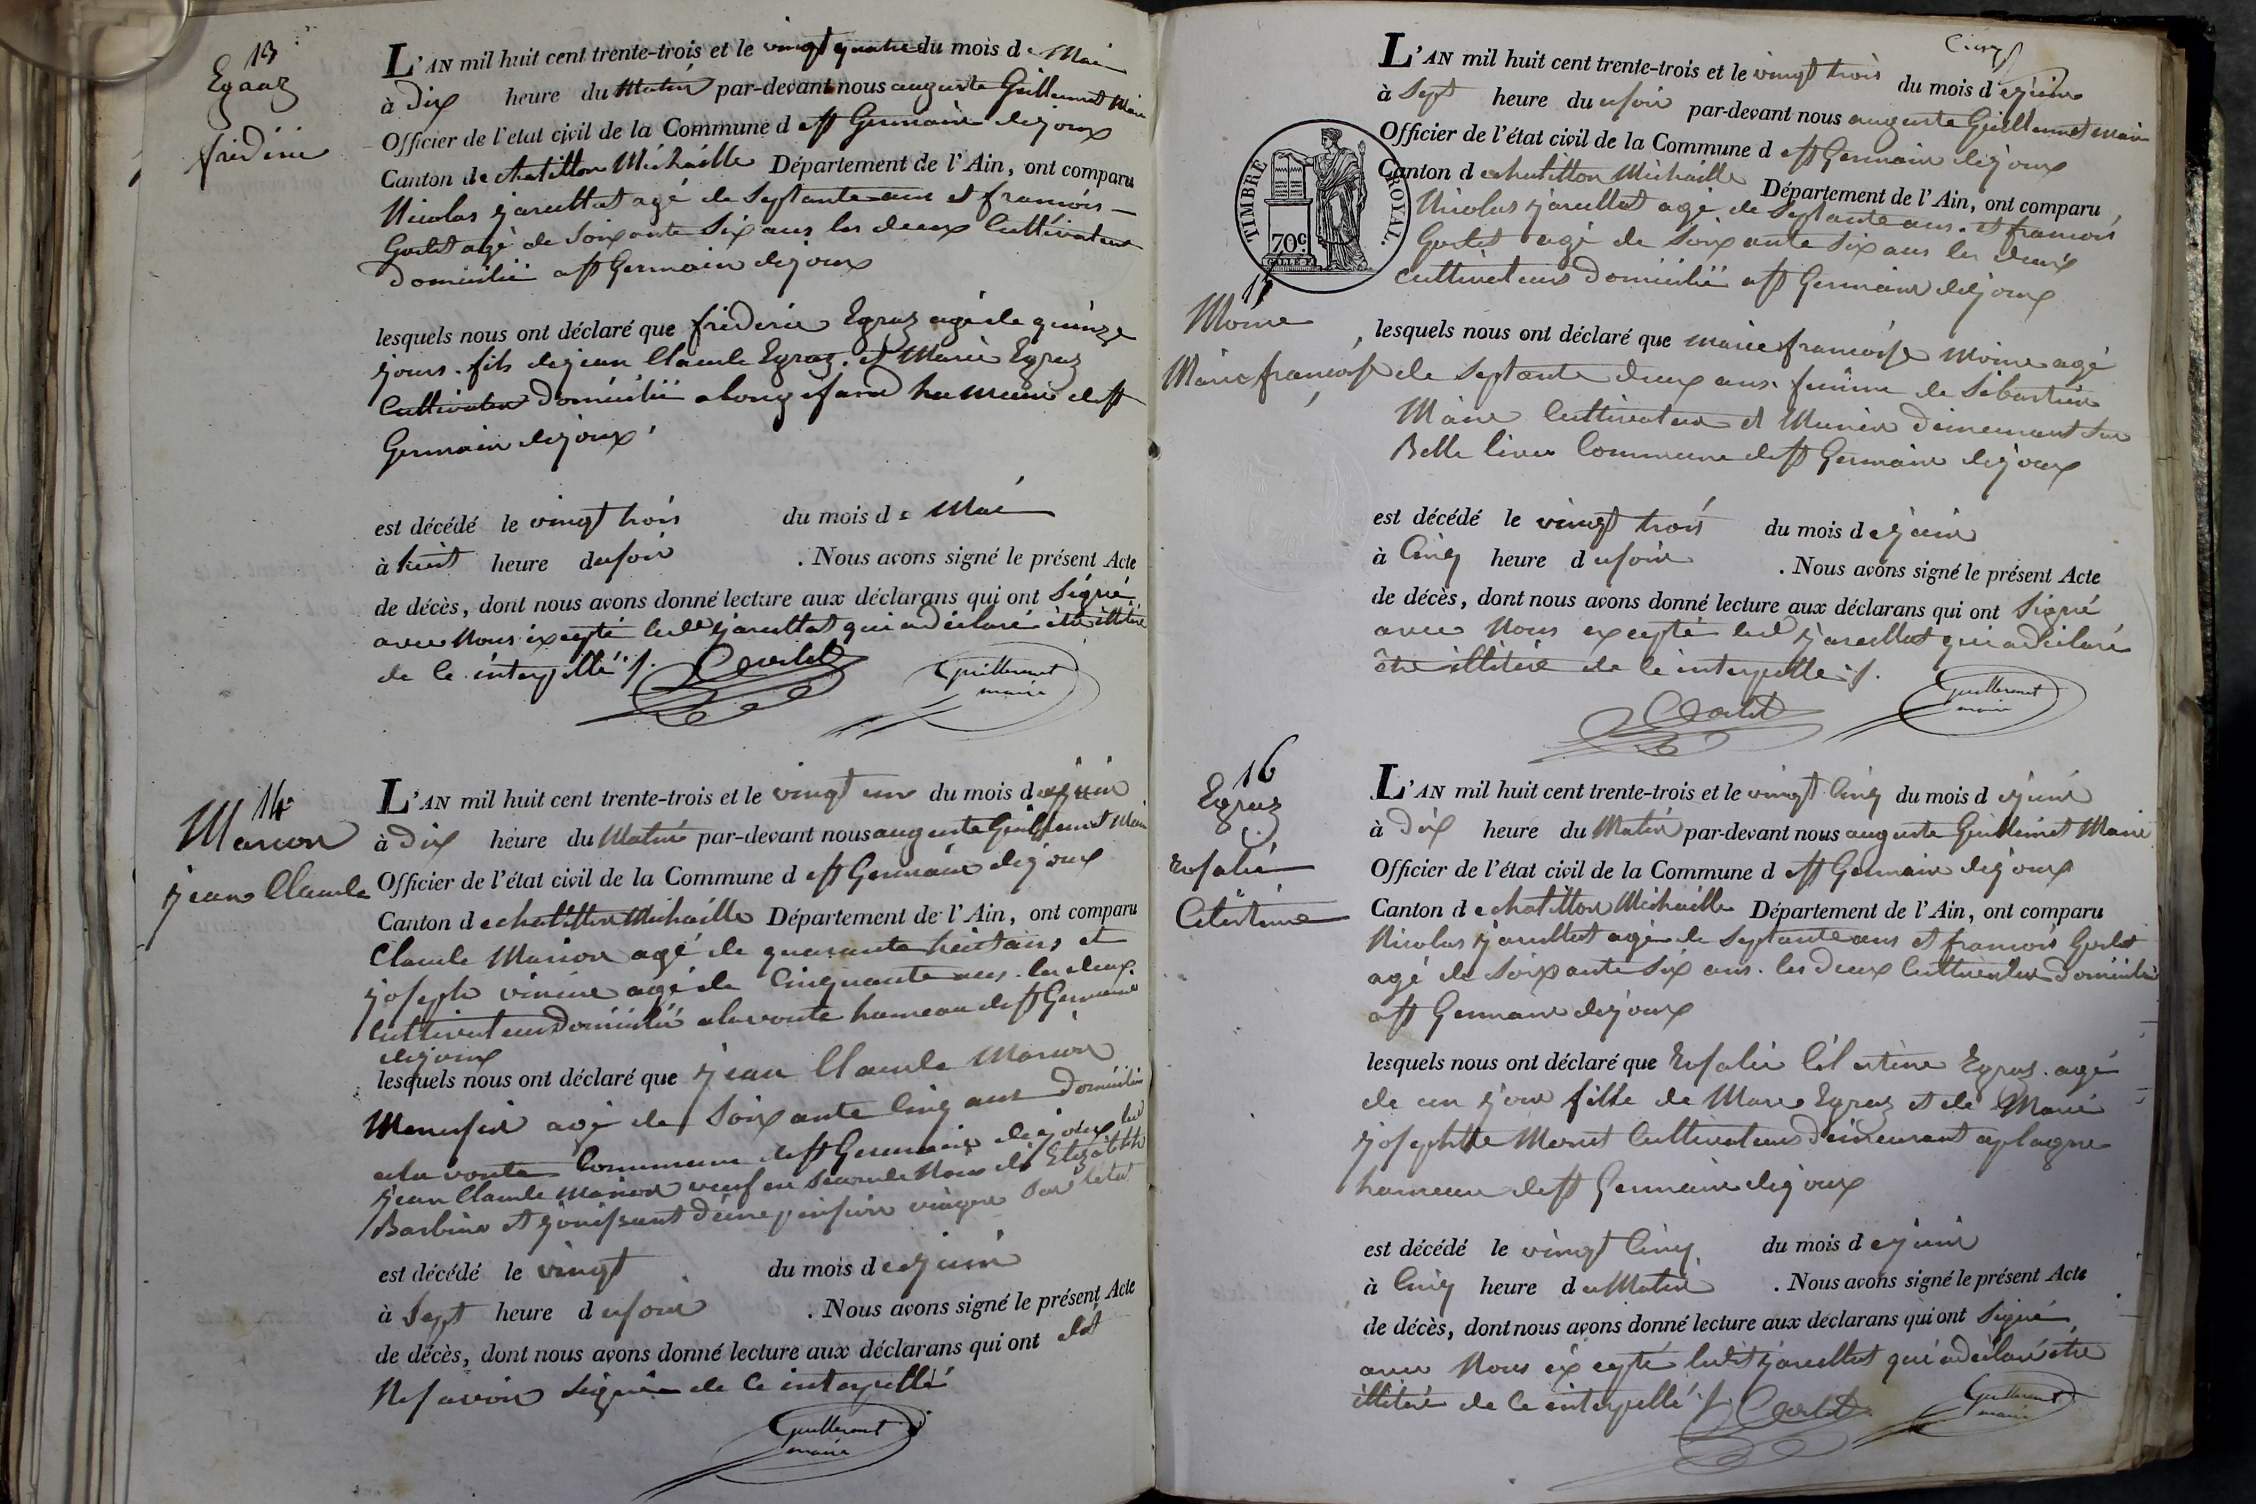 13
Egraz
fréderic
L'AN mil huit cent trente-trois et le vingt quatre du mois de Mai
à Dix heure du Matin par-devant nous auguste Guillermet Maire
Officier de l'etat civil de la Commune d e St Germain dejoux
Canton de chatillon Michaille Département de l'Ain, ont comparu
Nicolas jarullat agé de Septante ans et francois
Godet agé de Soixante Six ans les deux Cultivateurs
Domicilié a St Germain dejoux
lesquels nous ont déclaré que fréderic Egraz agé de quinze
jours. fils de jean Claude Egraz. et Marie Egraz
Cultivateur Domicilié a Longefand hameau de St
Germain dejoux
est décédé le vingt trois du mois de Mai
à huit heure du soir . Nous avons signé le présent Acte
de décès, dont nous avons donné lecture aux déclarans qui ont Signé
avec Nous excepté led jarullat qui a déclaré être illitéré
de ce interpellé ./.
Godet
Guillermet
maire
14
Marion
jean Claude
L'AN mil huit cent trente-trois et le vingt un du mois de juin
à Dix heure du Matin par-devant nous auguste Guillermet Maire
Officier de l'état civil de la Commune d e St Germain dejoux
Canton de chatillon Michaille Département de l'Ain, ont comparu
Claude Marion agé de quarante huit ans et
joseph agé de Cinquante ans. les deux
Cultivateurs Domicilié a la voute hameau de St Germain
dejoux
lesquels nous ont déclaré que jean Claude Marion
Menusier agé de Soixante Cinq ans Domicilié
a la voute Commune de St Germain dejoux led
jean Claude Marion veuf en Seconde Noce de Elizabeth
Barbier et jouissant d'une pension viagere Sur l'etat
est décédé le vingt du mois de juin
à Sept heure du soir . Nous avons signé le présent Acte
de décès, dont nous avons donné lecture aux déclarans qui ont dit
Ne savoir Signer de ce interpellé
Guillermet
maire
L'AN mil huit cent trente-trois et le vingt trois du mois de juin
à Sept heure du soir par-devant nous auguste Guillermet maire
Officier de l'état civil de la Commune d e St Germain dejoux
TIMBRE ROYAL.
70c.
Canton de chatillon Michaille Département de l'Ain, ont comparu
Nicolas jarullat agé de Septante ans. et francois
Godet agé de Soixante Six ans les deux
cultivateurs Domicilié a St Germain dejoux
15
Moine
Marie françoise
lesquels nous ont déclaré que marie francoise Moine agé
de Septante deux ans. femme de Sébastien
Moine Cultivateur et Munier Demeurant Sur
Belle Commune de St Germain dejoux
est décédé le vingt trois du mois de juin
à Cinq heure du soir . Nous avons signé le présent Acte
de décès, dont nous avons donné lecture aux déclarans qui ont Signé
avec Nous excepté led jarullat qui a déclaré
être illitéré de ce interpellé ./.
Godet
Guillermet
maire
16
Egraz
Rosalie
Célestine
L'AN mil huit cent trente-trois et le vingt Cinq du mois de juin
à Dix heure du Matin par-devant nous auguste Guillermet Maire
Officier de l'état civil de la Commune d e St Germain dejoux
Canton de chatillon Michaille Département de l'Ain, ont comparu
Nicolas jarullat agé de Septante ans et francois Godet
agé de Soixante Six ans. les deux Cultivateur Domicilié
a St Germain dejoux
lesquels nous ont déclaré que Rosalie Célestine Egraz. agé
de un jour fille de Marc Egraz et de Marie
josephtte Meret Cultivateurs Demeurant a plagne
hameau de St Germain dejoux
est décédé le vingt Cinq du mois de juin
à Cinq heure du Matin . Nous avons signé le présent Acte
de décès, dont nous avons donné lecture aux déclarans qui ont Signé
avec Nous excepté ledt jarullat qui a déclaré être
illitéré de ce interpellé ./.
Godet
Guillermet
maire